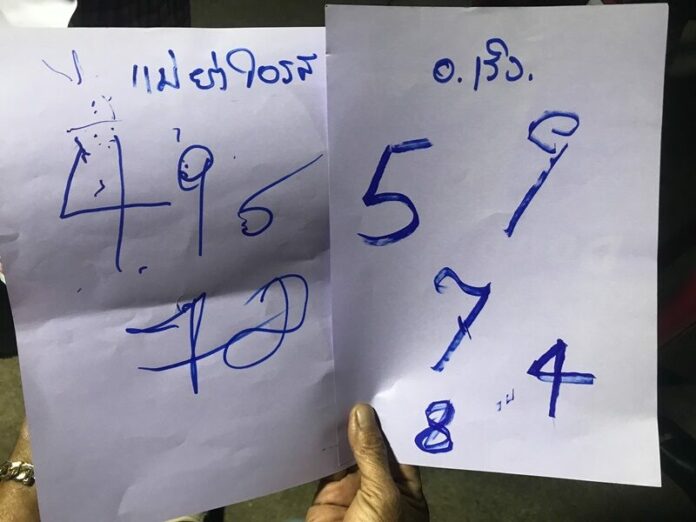 แม่ย่าใอรส
4 9 5
7
อ.เริง.
5 9
7
8 4